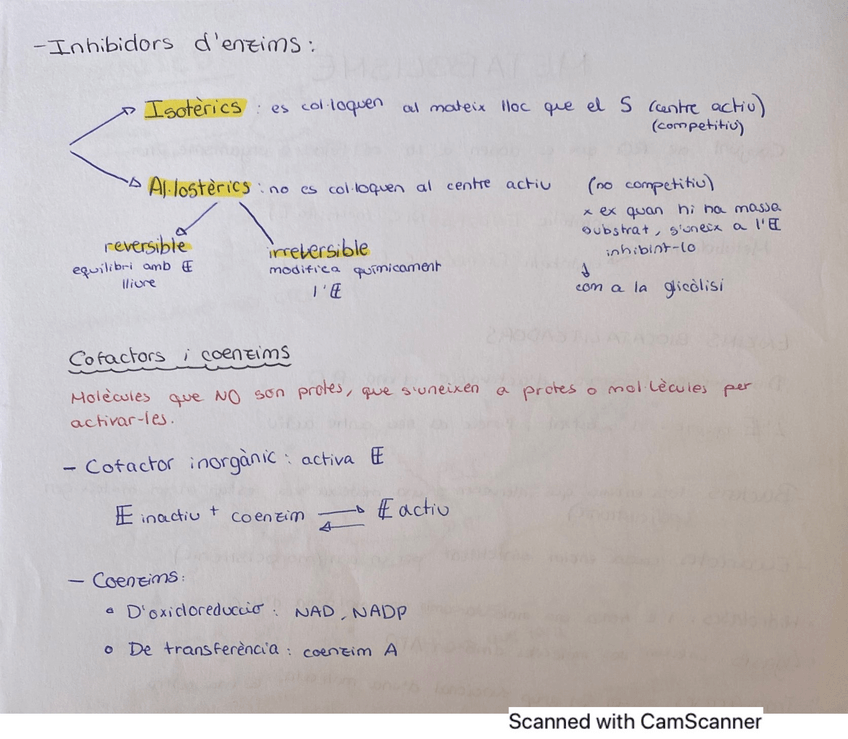 -Inhibidors d'enzims:
Isotèrics : es col·loquen al mateix lloc que el S (centre actiu)
(competitiu)
Al·lostèrics : no es col·loquen al centre actiu (no competitiu)
x ex quan hi ha massa
substrat, s'uneix a l'E
inhibint-lo
com a la glicòlisi
reversible
equilibri amb E
lliure
irreversible
modifica químicament
l'E
Cofactors i coenzims
Molècules que NO son protes, que s'uneixen a protes o mol·lècules per
activar-les.
- Cofactor inorgànic : activa E
E inactiu + coenzim ⇌ E actiu
- Coenzims:
• D'oxidoreducció : NAD, NADP
• De transferència : coenzim A
Scanned with CamScanner